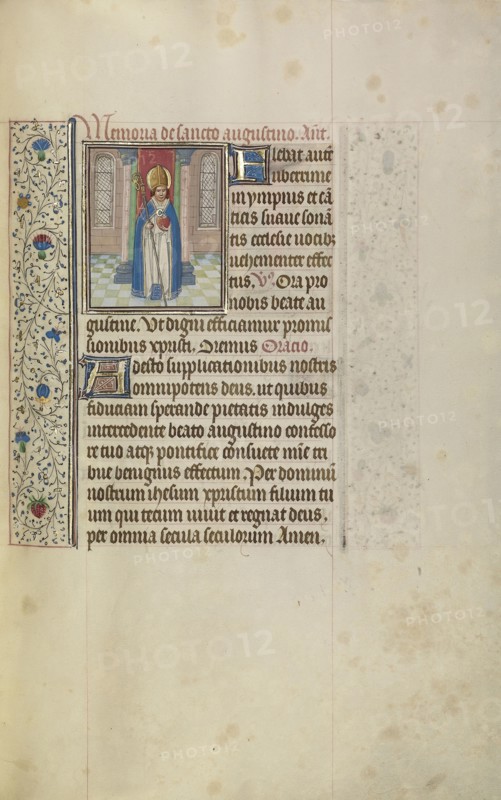 Memoria de sancto augustino. Ant.
Flebat autē
uberrime
in ympnis et cā
ticis suaue sonā
tis ecclesie uocibꝫ
uehementer affec
tus. V. Ora pro
nobis beate au
gustine. Vt digni efficiamur promis
sionibus xpristi. Oremus Oracio.
Adesto supplicationibus nostris
omnipotens deus. ut quibus
fiduciam sperande pietatis indulges
intercedente beato augustino confesso
re tuo atqꝫ pontifice consuete mīe tri
bue benignus effectum. Per dominū
nostrum ihesum xpristum filium tu
um qui tecum uiuit et regnat deus.
per omnia secula seculorum Amen.
PHOTO12
PHOTO12
PHOTO12
PHOTO12
PHOTO12
PHOTO12